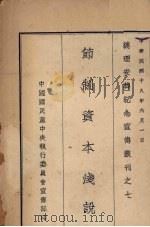 民國十八年六月一日
總理安葬紀念宣傳叢刊之七
節制資本淺說
中國國民黨中央執行委員會宣傳部